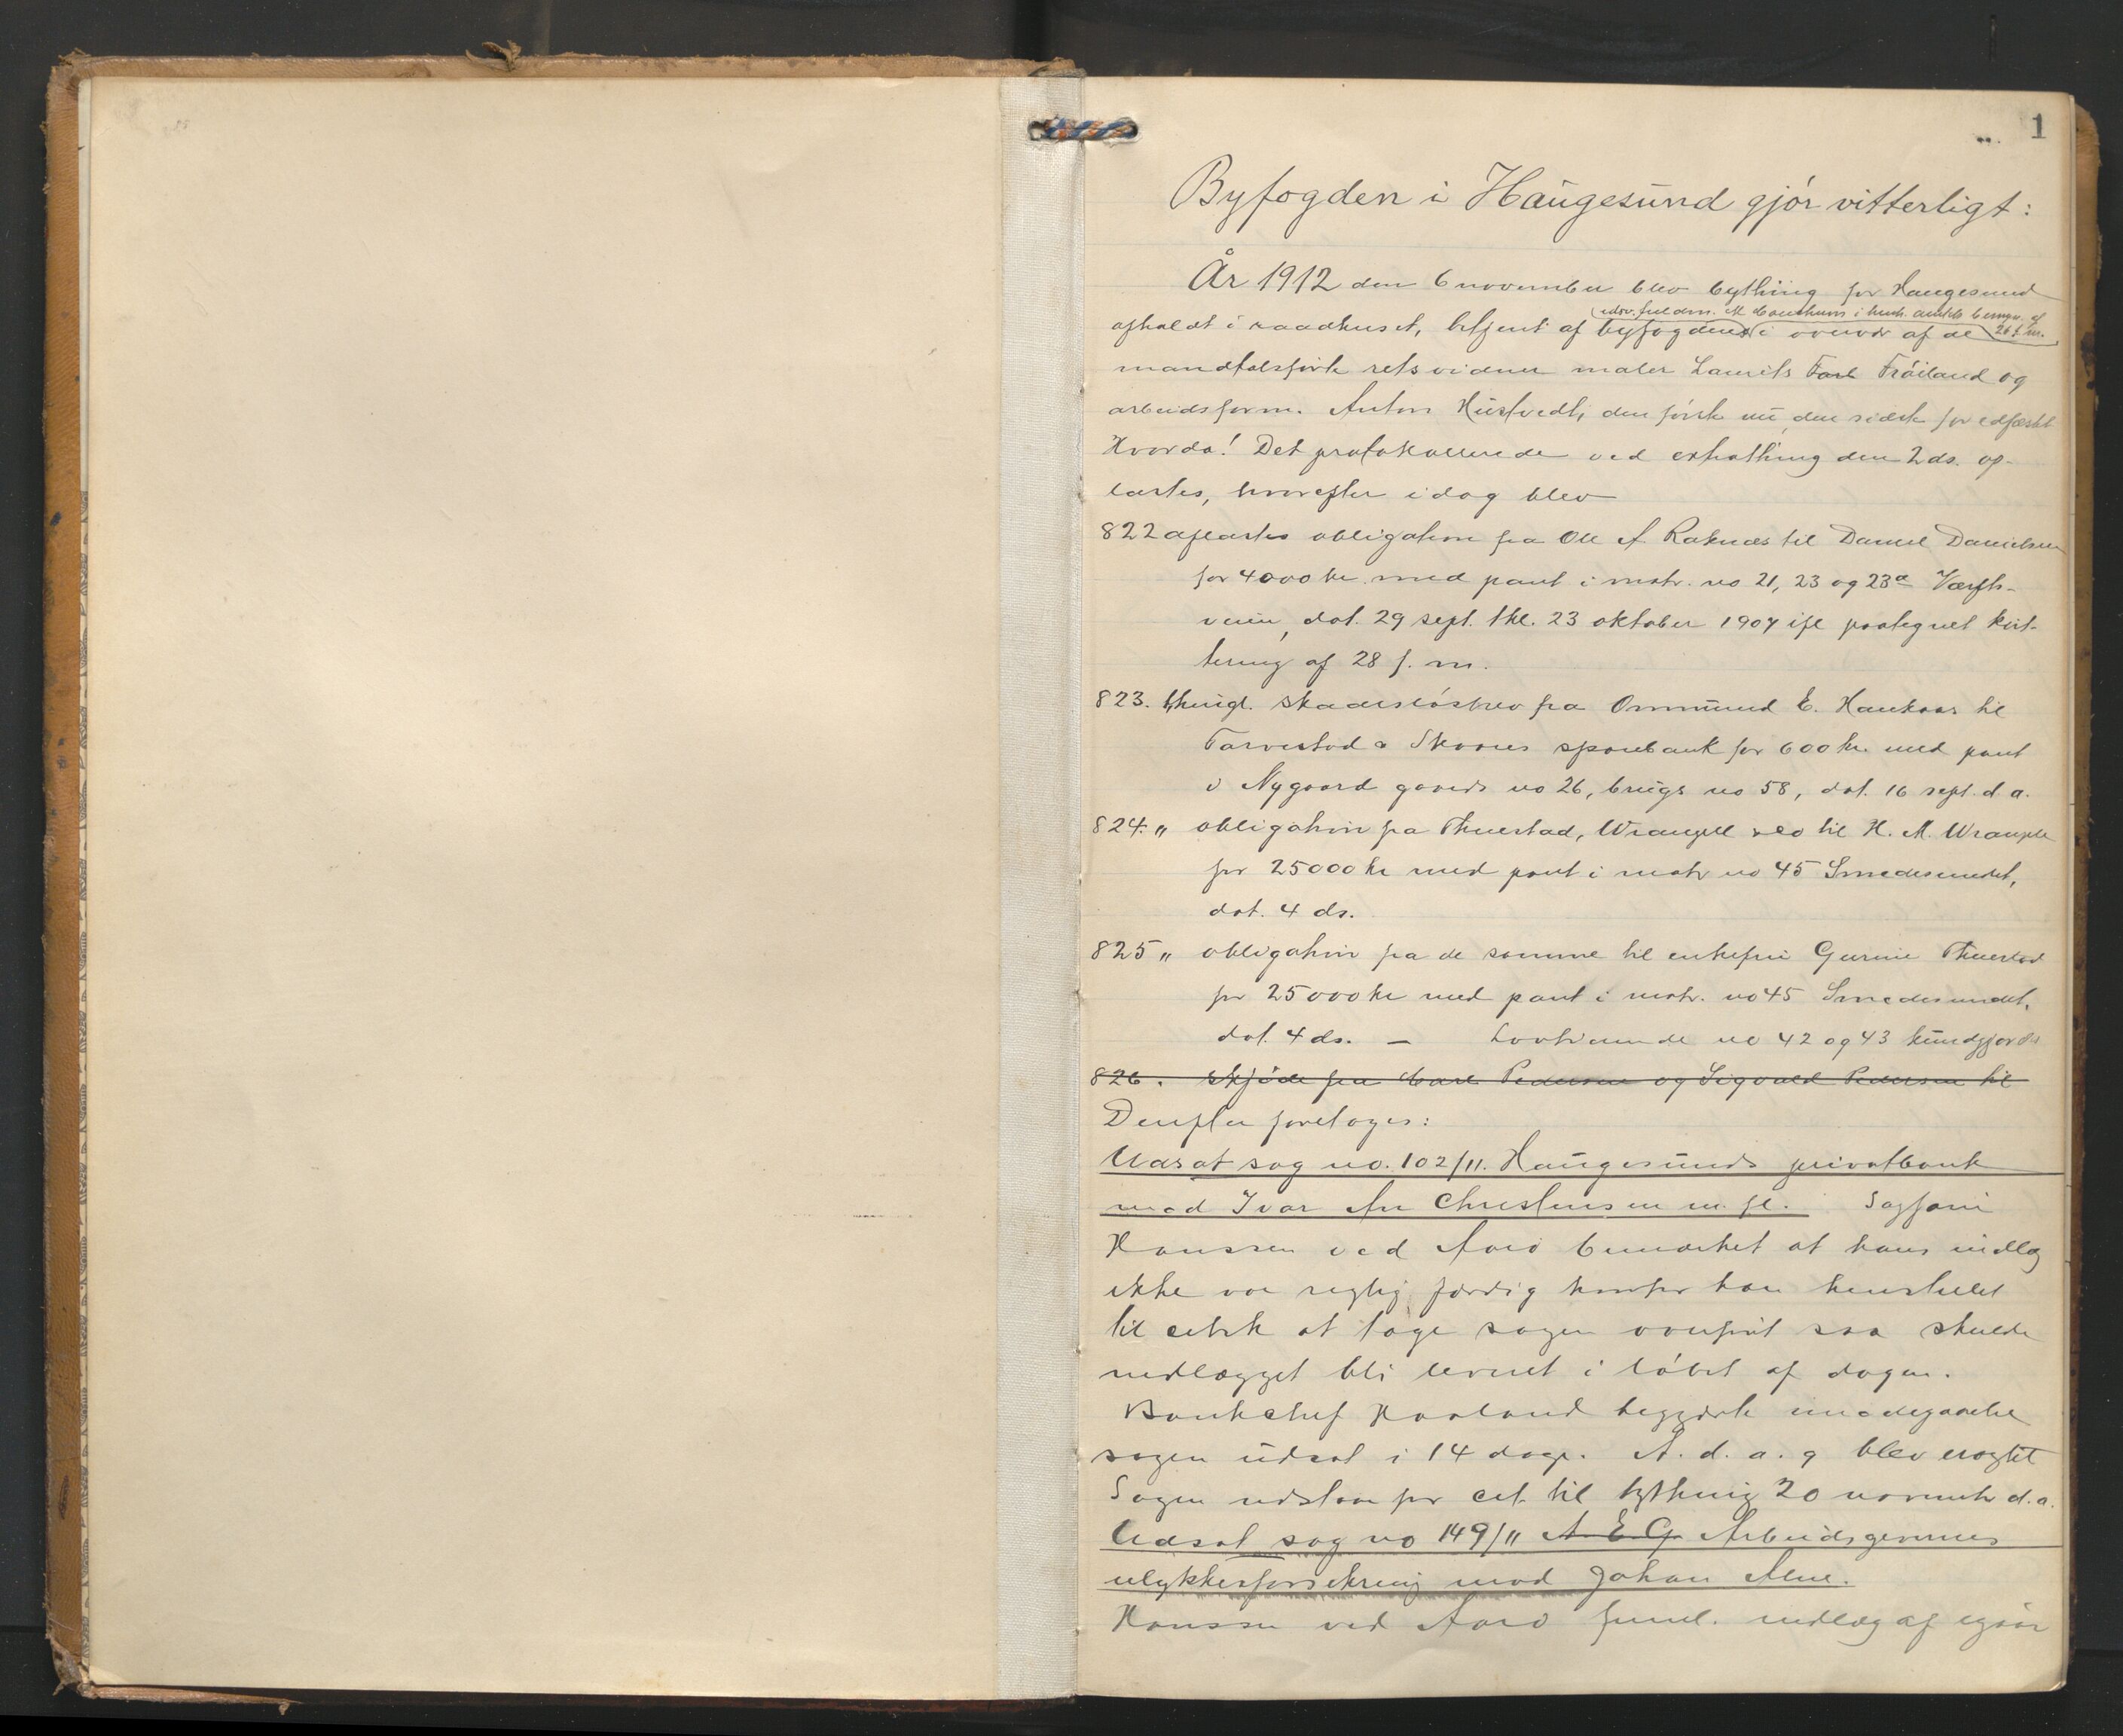 1
Byfogden i Haugesund gjör vitterligt:
År 1912 den 6 november blev bything for Haugesund
udv. fuldm. i henh. amtets bemyn. af
26 f. m.
afholdt i raadhuset, betjent af byfogden i overvær af de
mandtalsførte retsvidner maler Laurits Fröiland og
arbeidsform. Anton Hustvedt, den første nu, den sidste før edfæstet
Hvorda! Det protokollerede ved extrathing den 2 ds. op-
læstes, hvorefter idag blev
822 aflæstes obligation fra Ole A Raknes til Daniel Danielsen
for 4000 kr. med pant i matr. no 21, 23 og 23a Værfts-
veien, dat. 29 sept. thl. 23 oktober 1907 ifl paategnet kvit-
tering af 28 f. m.
823. thingl. skadesløsbrev fra Ommund E. Haukaas til
Torvestad & Skaares sparebank for 600 kr. med pant
i Nygaard gaards no 26, brugs no 58, dat. 16 sept. d. a.
824. " obligation fra Thuestad, Wrangell & co til H. M. Wrangell
for 25000 kr med pant i matr no 45 Smedesundet,
dat. 4 ds.
825 " obligation fra de samme til enkefru Gurine Thuestad
for 25000 kr med pant i matr. no 45 Smedesundet,
dat. 4 ds. — Lovtidende no 42 og 43 kundgjordes
826. Skjøde fra Carl Pedersen og Sigvald Pedersen til
Derefter foretoges:
Udsat sag no. 102/11. Haugesunds privatbank
mod Ivar An Christensen m. fl. Sagfører
Hanssen ved Aarø bemærket at hans indlæg
ikke var rigtig færdig hvorfor han henstillet
til at tage sagen saa skulde
indlægget bli leveret i løbet af dagen.
Bankchef Haaland begjærte imødegaaelse
sagen udsat i 14 dage. A. d. a. g blev eragtet
Sagen udstaar for til bything 20 novembr d. a.
Udsat sag no 149/11 A E G Arbeidsgivernes
ulykkesforsikring mod Johan Alne.
Hanssen ved Aarø freml. indlæg af igaar